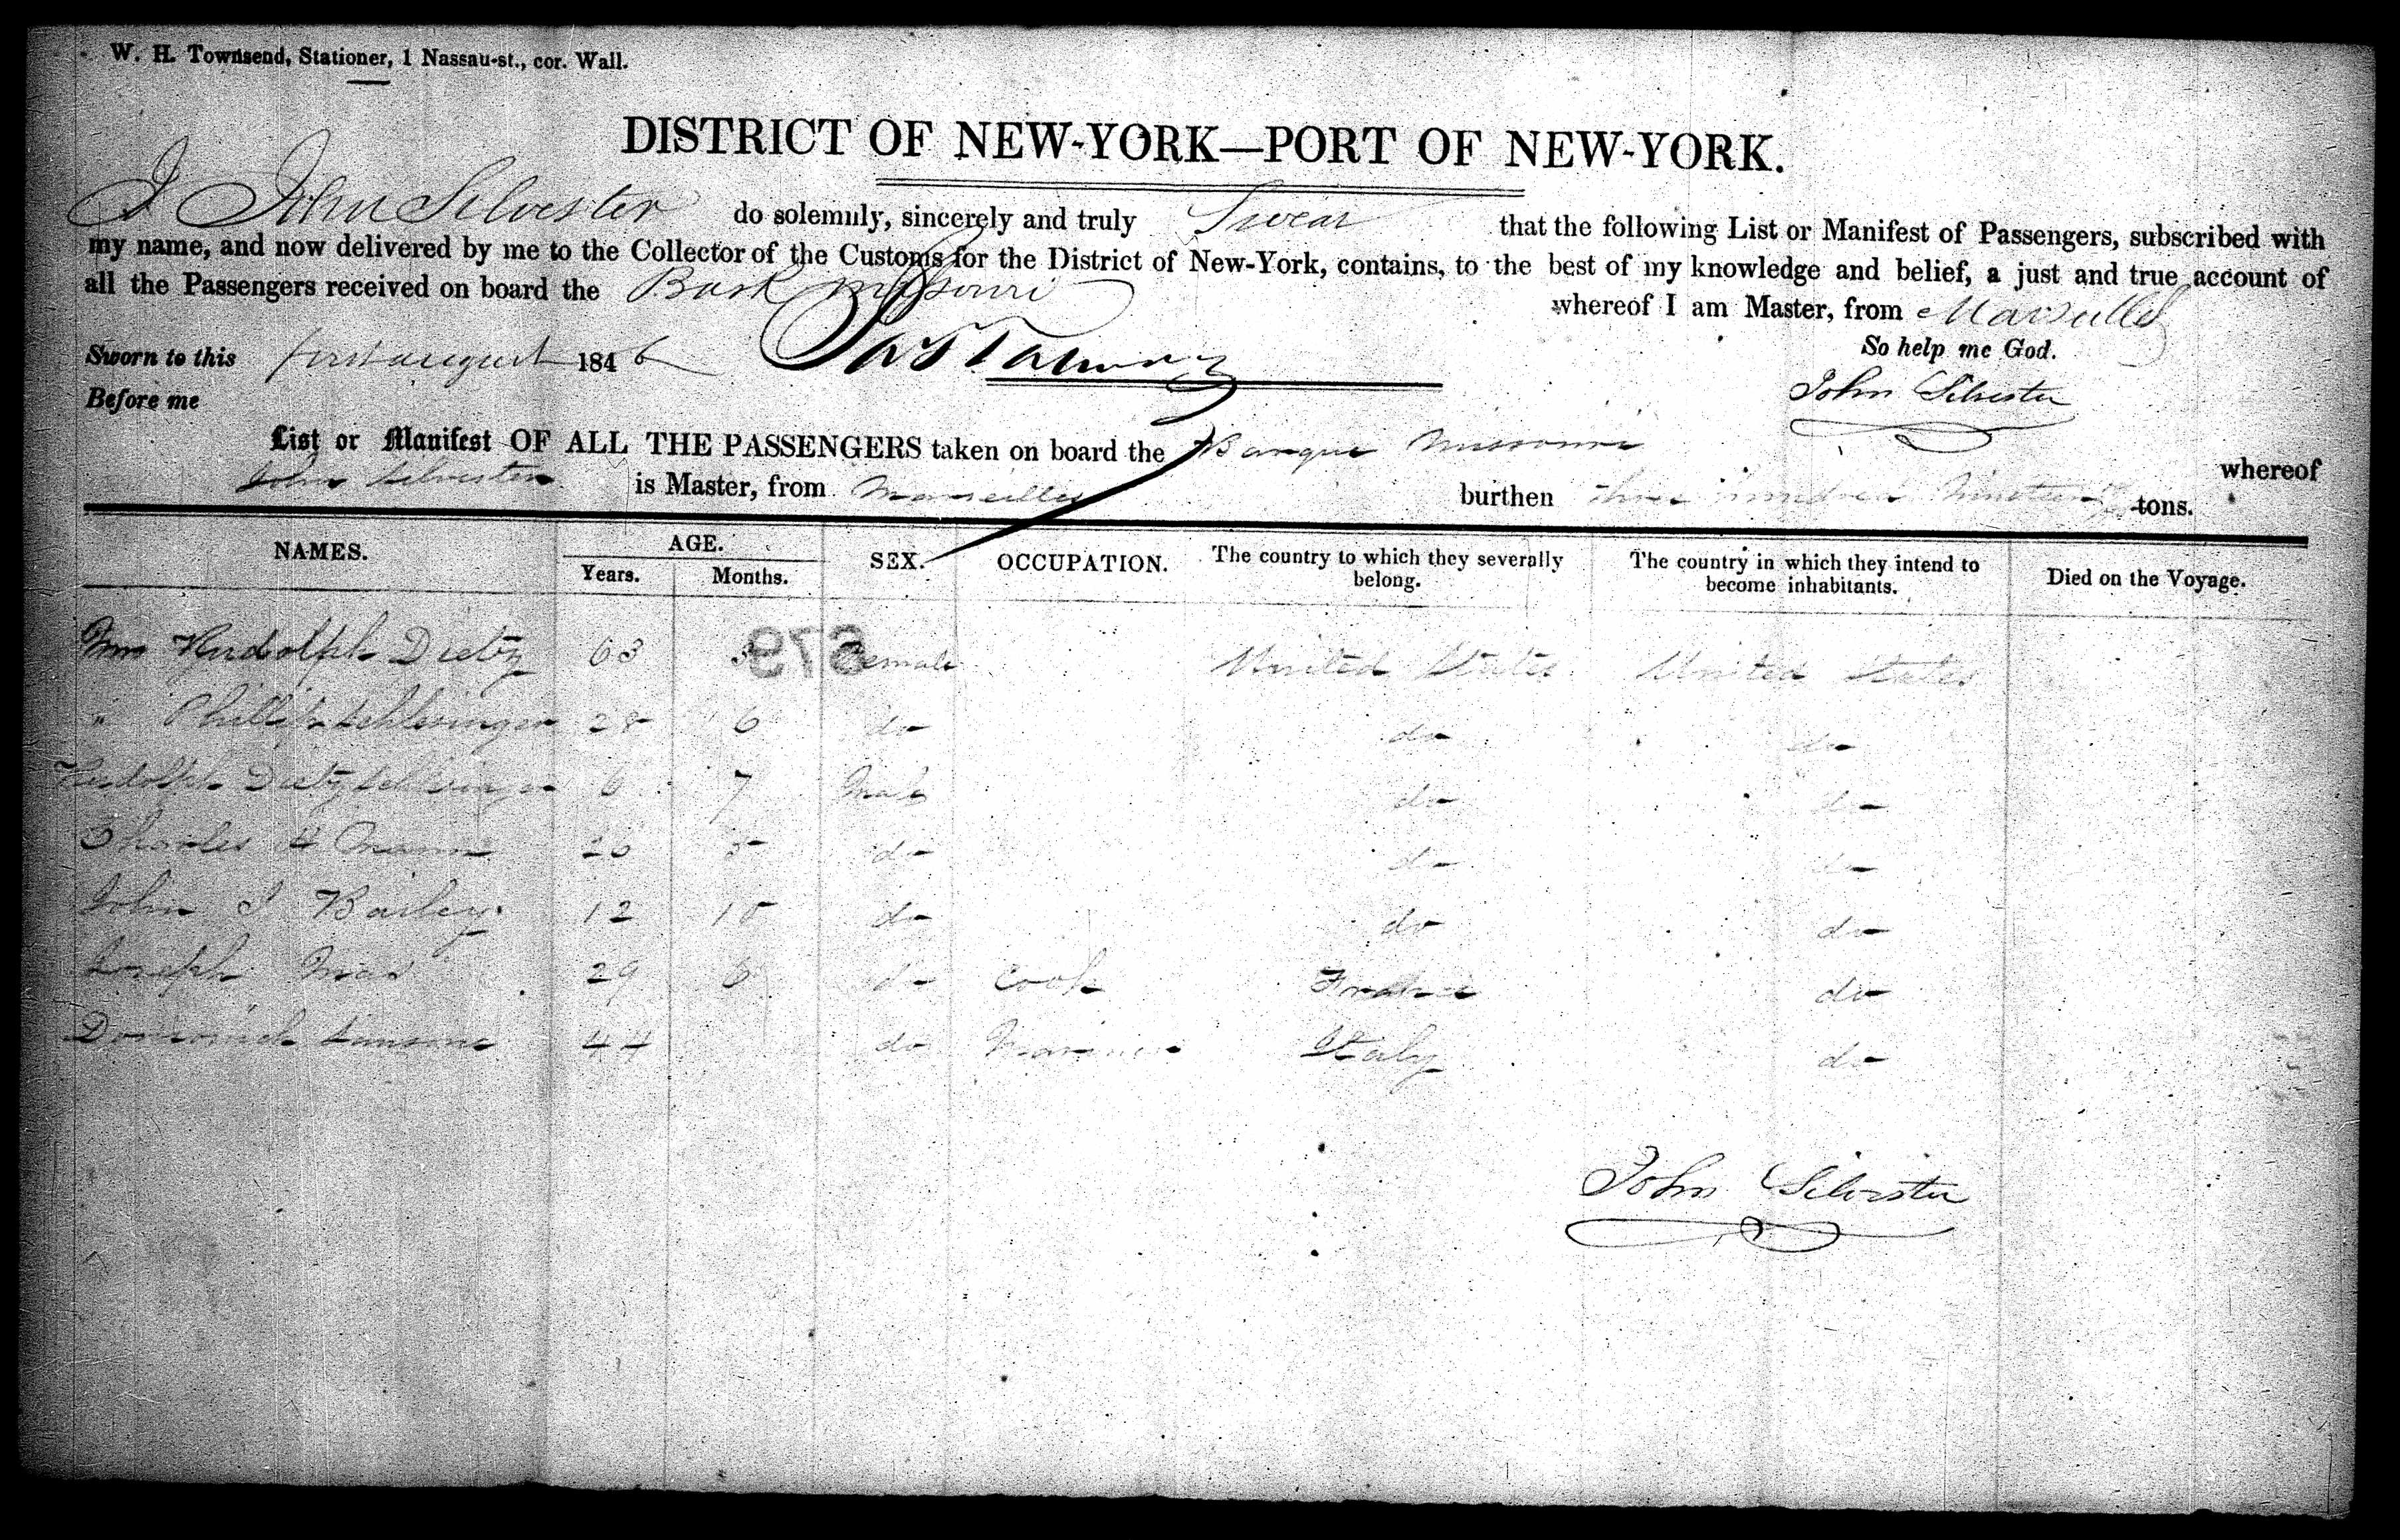 W. H. Townsend, Stationer, 1 Nassau-st., cor. Wall.
DISTRICT OF NEW-YORK—PORT OF NEW-YORK.
I John Silvester do solemnly, sincerely and truly Swear that the following List or Manifest of Passengers, subscribed with
my name, and now delivered by me to the Collector of the Customs for the District of New-York, contains, to the best of my knowledge and belief, a just and true account of
all the Passengers received on board the Bark Missouri whereof I am Master, from Marseilles
So help me God.
Sworn to this first august 1846
John Silvester
Before me
List or Manifest OF ALL THE PASSENGERS taken on board the Barque Missouri whereof
John Silvester is Master, from Marseilles burthen three hundred tons.
NAMES. AGE. SEX. OCCUPATION. The country to which they severally belong. The country in which they intend to become inhabitants. Died on the Voyage.
Years. Months.
679
Mrs Rudolph Dietz 63 Female United States United States
" Phillip Schlesinger 28 6 do do do
Rudolph Dietz Schlesinger 6 7 Male do do
Charles H 26 5 do do do
John I Bailey 12 10 do do do
Joseph 29 6 do Cook France do
Dominick 44 do Mariner Italy do
John Silvester